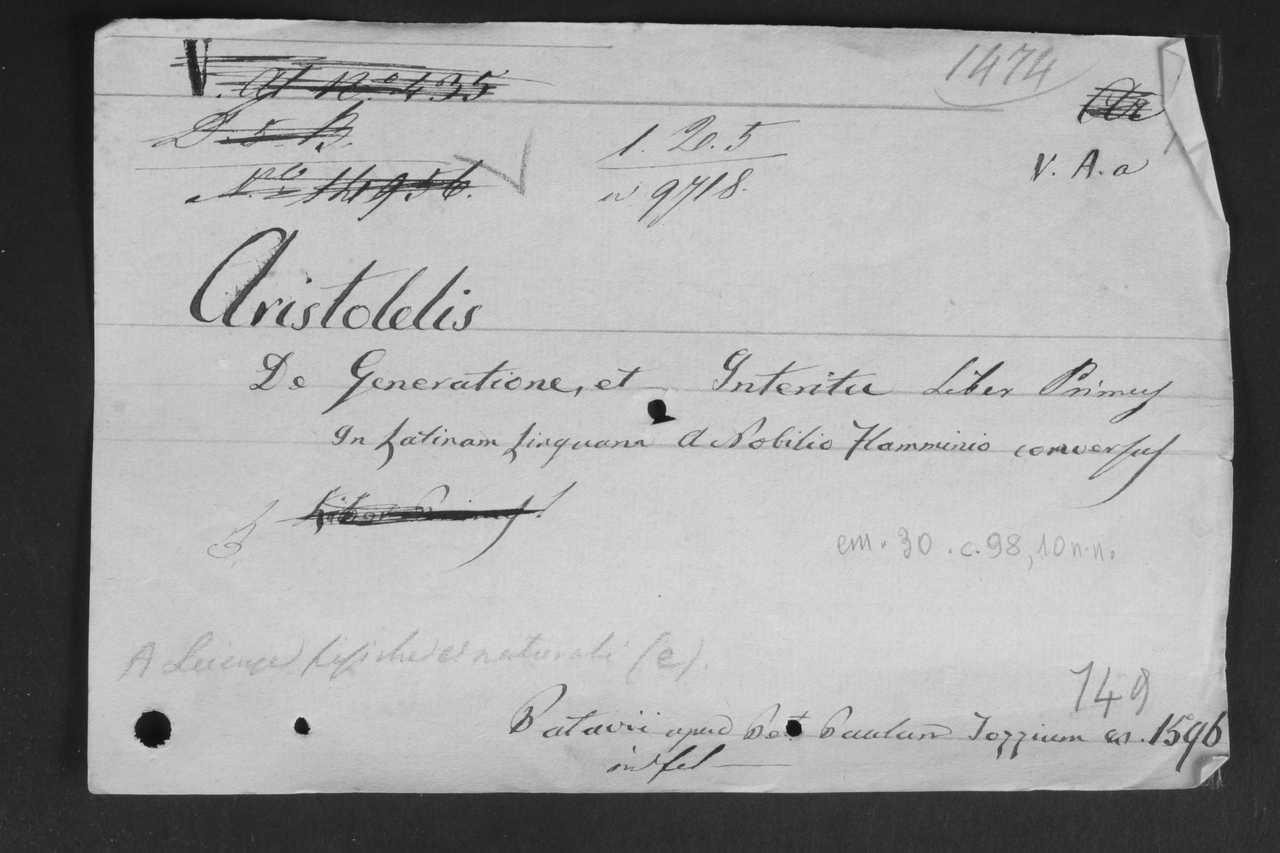 1474
V. at No. 435
D. 5. B.
1. 20. 5
V. A. a
No. 141956.
n 9718.
Aristotelis
De Generatione, et Interitu Liber Primus
In Latinam Linguam A Nobilio Flamminio conversus
Liber Primus.
cm. 30. c. 98, 10 n.n.
A Scienze fisiche e naturali (e).
149
Patavii apud Pet Paulum Tozzium an. 1596
in fol